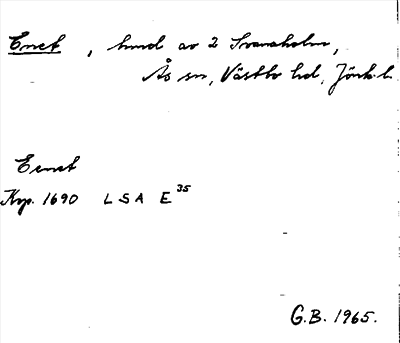 Enet, hmd av 2 Svanaholm,
Ås sn, Västbo hd, Jönk. l.
Eenet
Krp. 1690 LSA E³⁵
G.B. 1965.